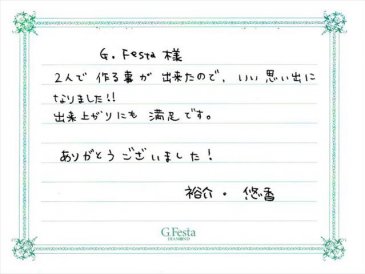 G. Festa 様
2人で 作る事が 出来たので、いい 思い出に
なりました!!
出来上がりにも 満足です。
ありがとうございました!
裕介・悠香
G.Festa
DIAMOND